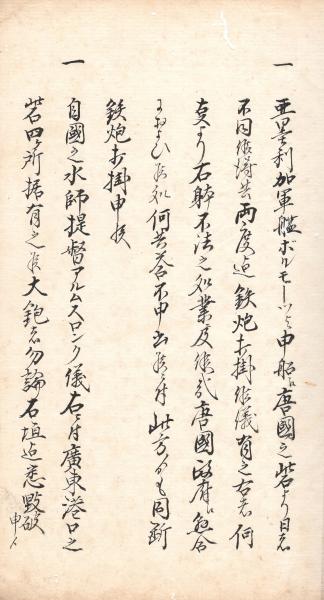 一 亜墨利加軍艦ボルモーツと申船江唐國之砦より日を
不同候得共両度迄鉄炮打掛候儀有之右者何
故より右躰不法之処業及候哉唐國政府江懸合
におよひ候処何共答不申出候付此方よりも同断
鉄炮打掛申候
一 自國之水師提督アルムスロンク儀右ニ付廣東港口之
砦四ヶ所据有之候大炮者勿論石垣迄悉毀破
申候